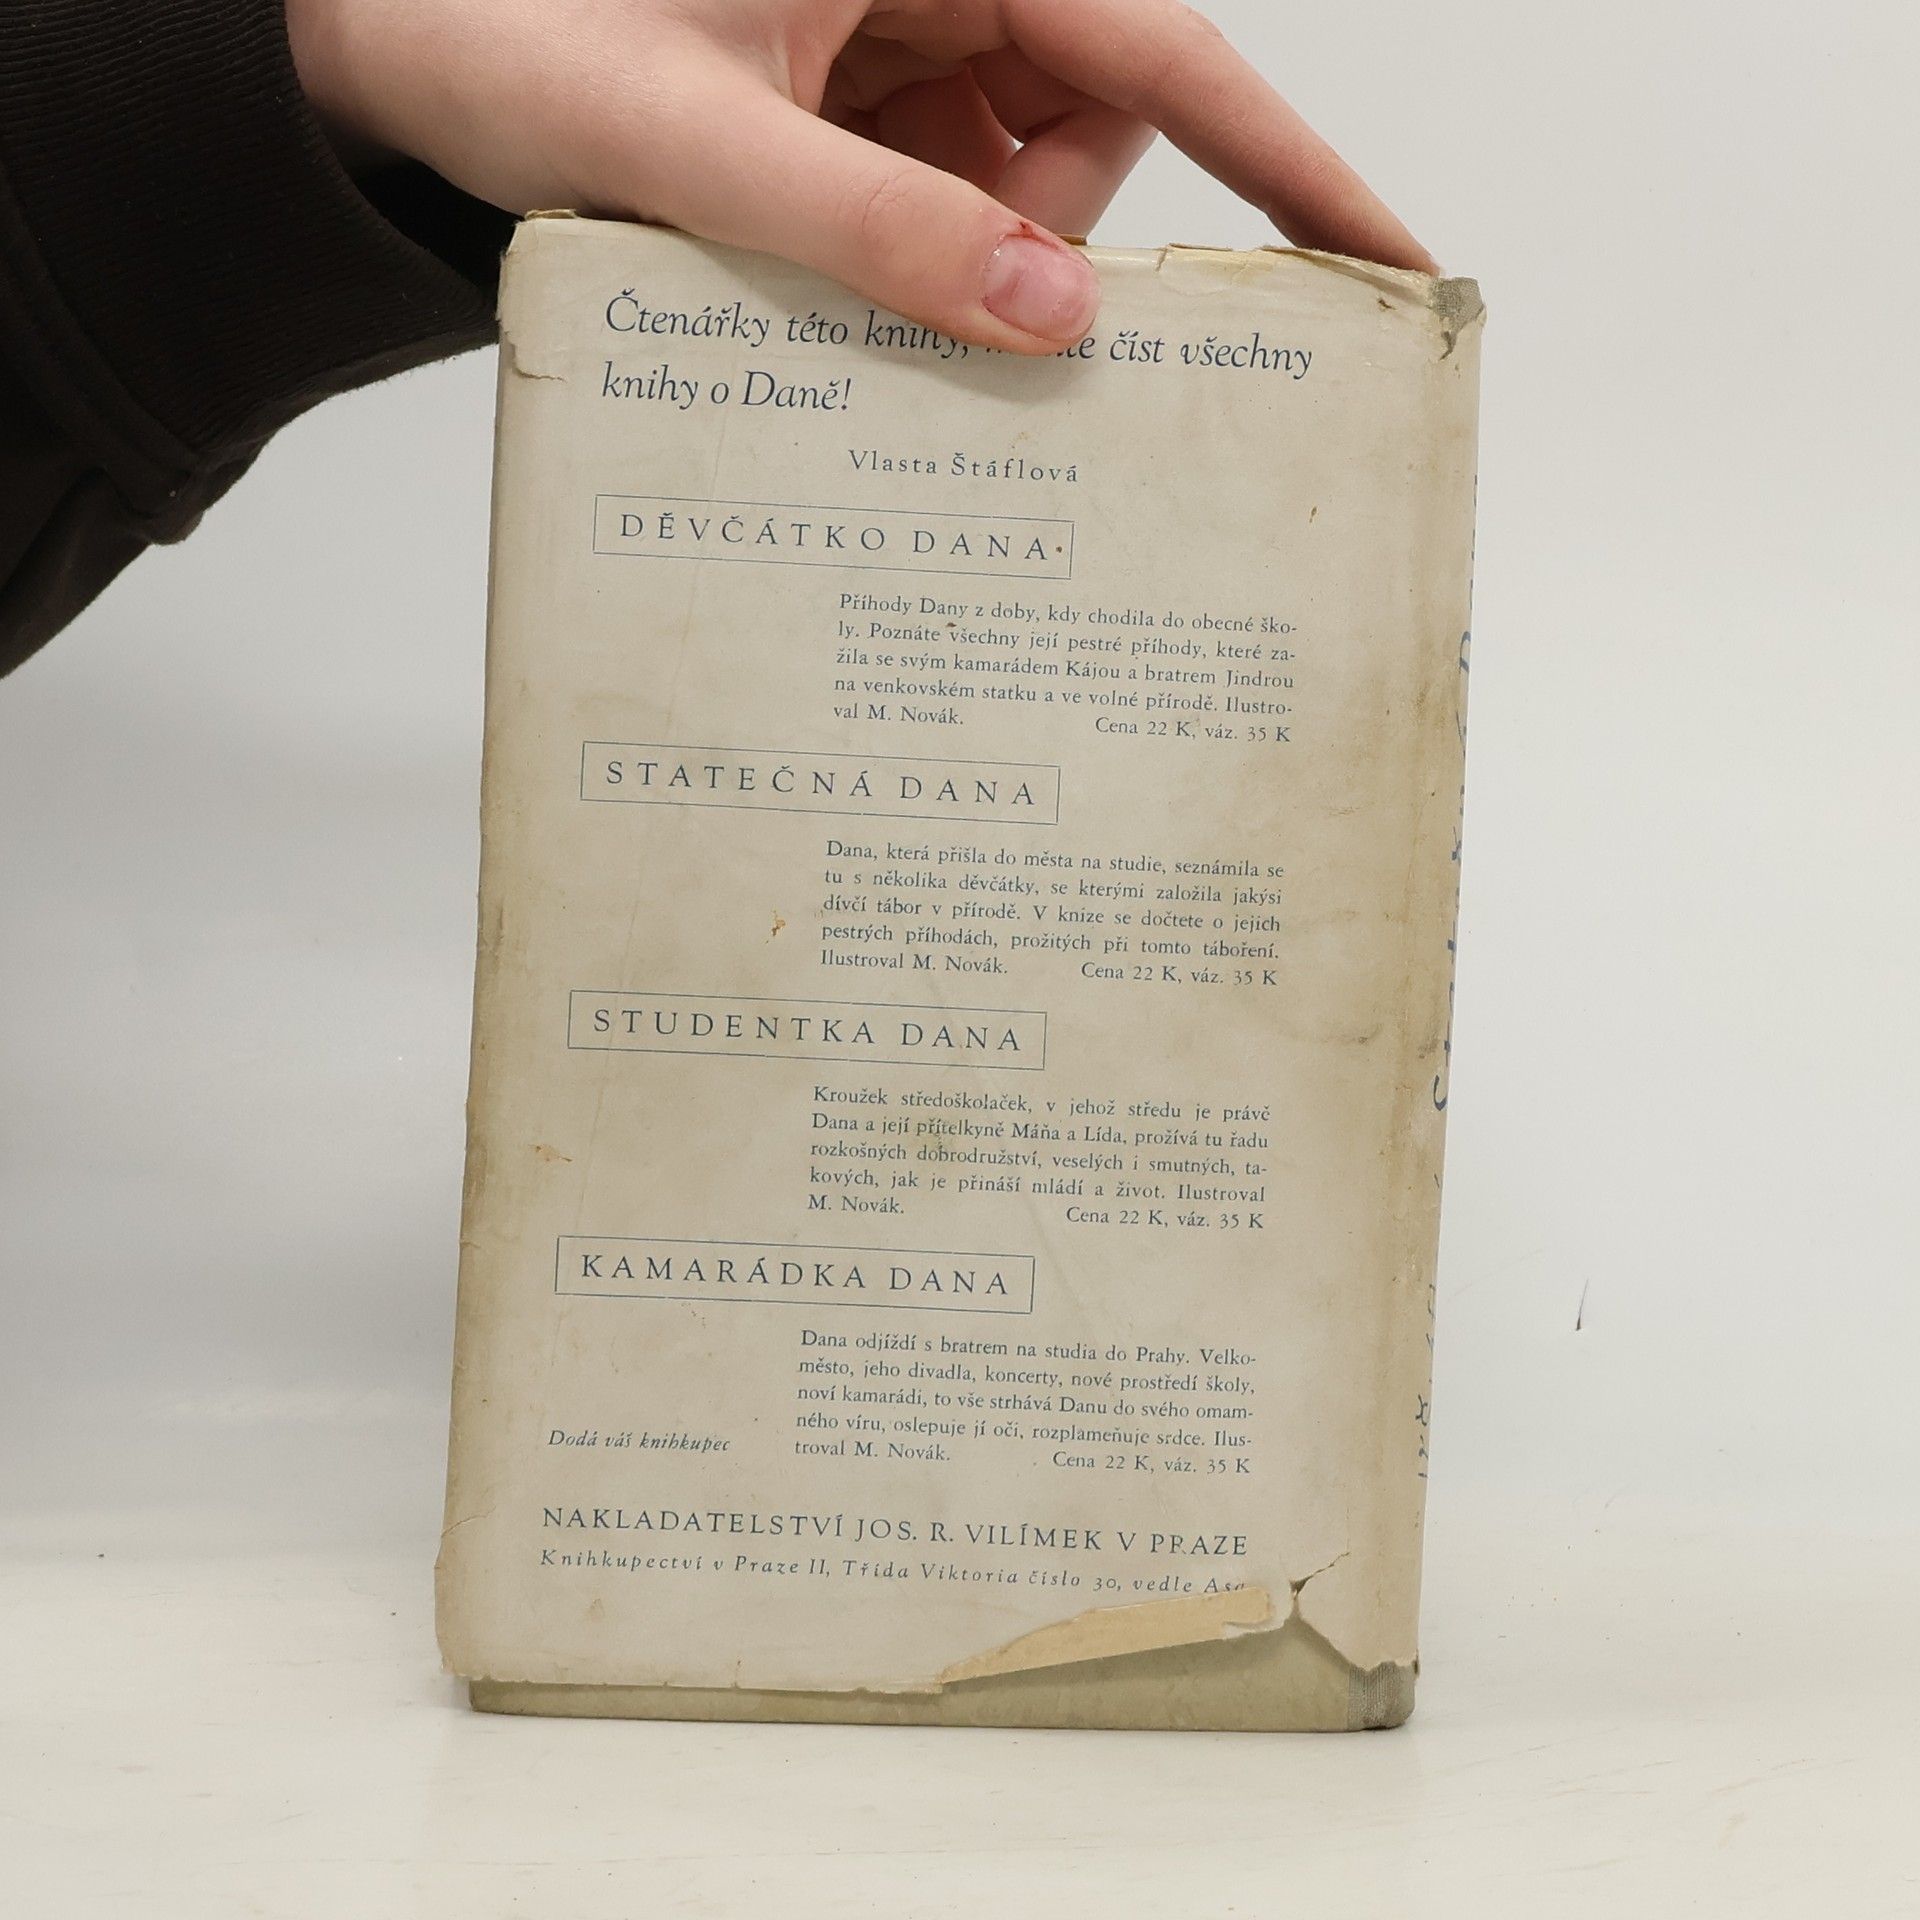 Čtenářky této knihy, číst všechny
knihy o Daně!
Vlasta Štáflová
DĚVČÁTKO DANA
Příhody Dany z doby, kdy chodila do obecné ško-
ly. Poznáte všechny její pestré příhody, které za-
žila se svým kamarádem Kájou a bratrem Jindrou
na venkovském statku a ve volné přírodě. Ilustro-
val M. Novák. Cena 22 K, váz. 35 K
STATEČNÁ DANA
Dana, která přišla do města na studie, seznámila se
tu s několika děvčátky, se kterými založila jakýsi
dívčí tábor v přírodě. V knize se dočtete o jejich
pestrých příhodách, prožitých při tomto táboření.
Ilustroval M. Novák. Cena 22 K, váz. 35 K
STUDENTKA DANA
Kroužek středoškolaček, v jehož středu je právě
Dana a její přítelkyně Máňa a Lída, prožívá tu řadu
rozkošných dobrodružství, veselých i smutných, ta-
kových, jak je přináší mládí a život. Ilustroval
M. Novák. Cena 22 K, váz. 35 K
KAMARÁDKA DANA
Dana odjíždí s bratrem na studia do Prahy. Velko-
město, jeho divadla, koncerty, nové prostředí školy,
noví kamarádi, to vše strhává Danu do svého omam-
ného víru, oslepuje jí oči, rozplameňuje srdce. Ilus-
troval M. Novák. Cena 22 K, váz. 35 K
Dodá váš knihkupec
NAKLADATELSTVÍ JOS. R. VILÍMEK V PRAZE
Knihkupectví v Praze II, Třída Viktoria číslo 30, vedle